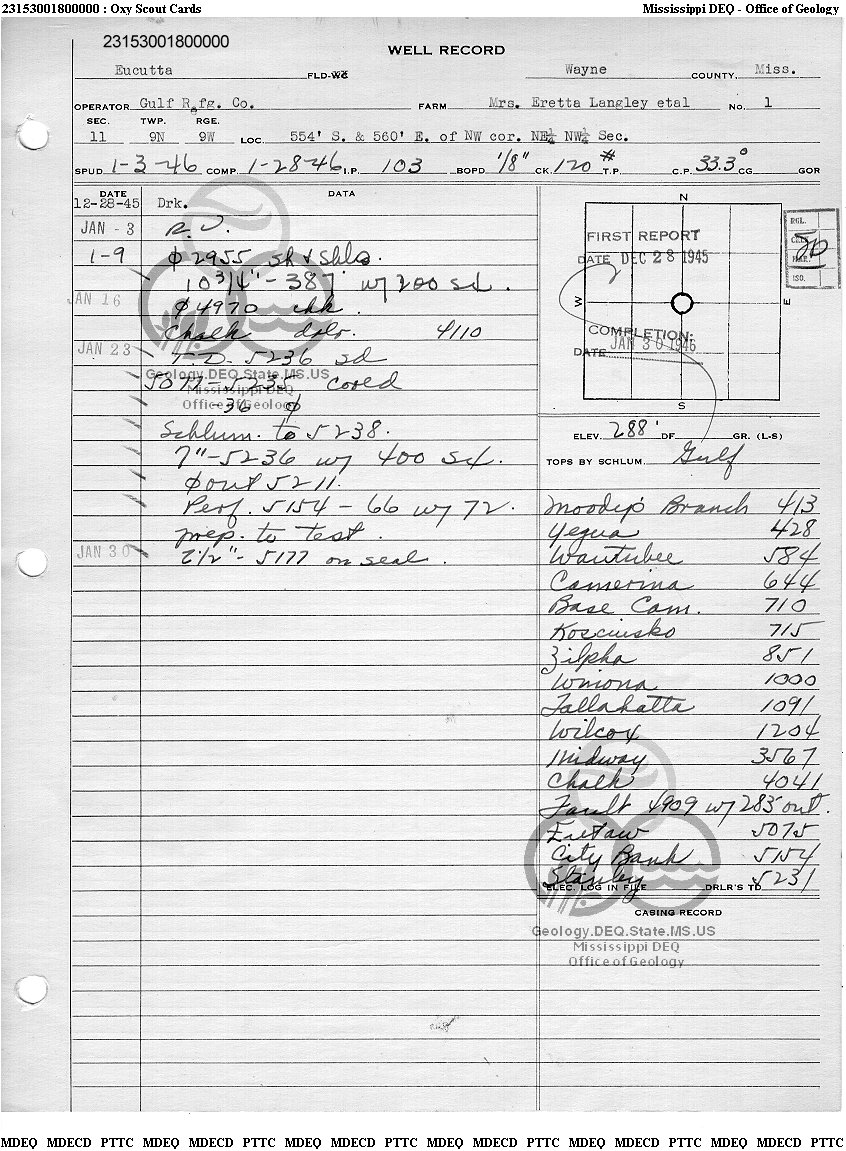 23153001800000 : Oxy Scout Cards Mississippi DEQ - Office of Geology
23153001800000
WELL RECORD
Eucutta FLD-WC Wayne COUNTY, Miss.
OPERATOR Gulf Rfg. Co. FARM Mrs. Eretta Langley etal NO. 1
SEC. TWP. RGE.
11 9N 9W LOC. 554' S. & 560' E. of NW cor. NE¼ NW¼ Sec.
SPUD 1-3-46 COMP. 1-28-46 I.P. 103 BOPD 1/8" CK. 120# T.P. C.P. 33.3° CG GOR
DATE DATA
12-28-45 Drk.
JAN - 3 R.U.
1-9 φ 2955 sh & shls.
10 3/4" - 387' w/ 200 sx.
JAN 16 φ 4970 chk.
Chalk dolr. 4110
JAN 23 T.D. 5236 sd
5077-5235 cored
-36 φ
Schlum. to 5238.
7" - 5236 w/ 400 sx.
φ out 5211.
Perf. 5154 - 66 w/ 72.
prep. to test.
JAN 30 2 1/2" - 5177 on seal.
N
W
E
S
FIRST REPORT
DATE DEC 28 1945
COMPLETION:
DATE JAN 30 1946
RGL.
MAR.
ISO.
ELEV. 288' DF GR. (L-S)
TOPS BY SCHLUM. Gulf
Moody's Branch 413
Yegua 428
Wautubee 584
Camerina 644
Base Cam. 710
Kosciusko 715
Zilpha 851
Winona 1000
Tallahatta 1091
Wilcox 1204
Midway 3567
Chalk 4041
Fault 4909 w/ 283' out.
Eutaw 5075
City Bank 5154
Stanley 5231
ELEC. LOG IN FILE DRLR'S TD
CASING RECORD
Geology.DEQ.State.MS.US
Mississippi DEQ
Office of Geology
Geology.DEQ.State.MS.US
Mississippi DEQ
Office of Geology
MDEQ MDECD PTTC MDEQ MDECD PTTC MDEQ MDECD PTTC MDEQ MDECD PTTC MDEQ MDECD PTTC MDEQ MDECD PTTC